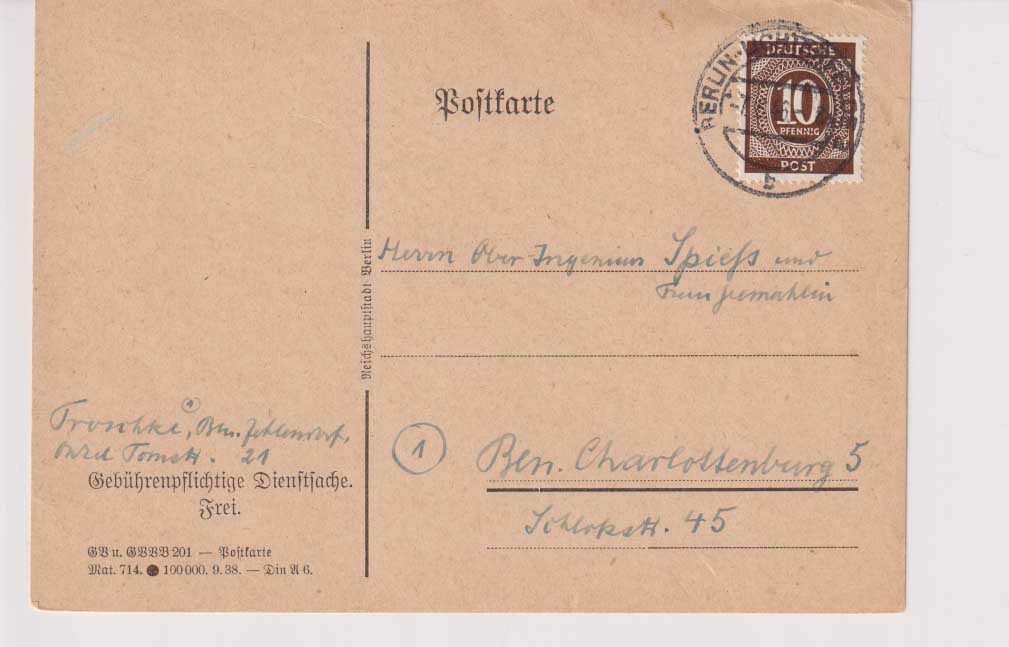 Postkarte
BERLIN-
DEUTSCHE
10
PFENNIG
POST
b
Herrn Ober-Ingenieur Spießs und
Frau Gemahlin
Reichshauptstadt Berlin
Troschke, Bln. Zehlendorf,
Onkel Tomstr. 21
① Bln. Charlottenburg 5
Schloßstr. 45
Gebührenpflichtige Dienstsache.
Frei.
GB u. GVBB 201 — Postkarte
Mat. 714. ● 100000. 9. 38. — Din A 6.